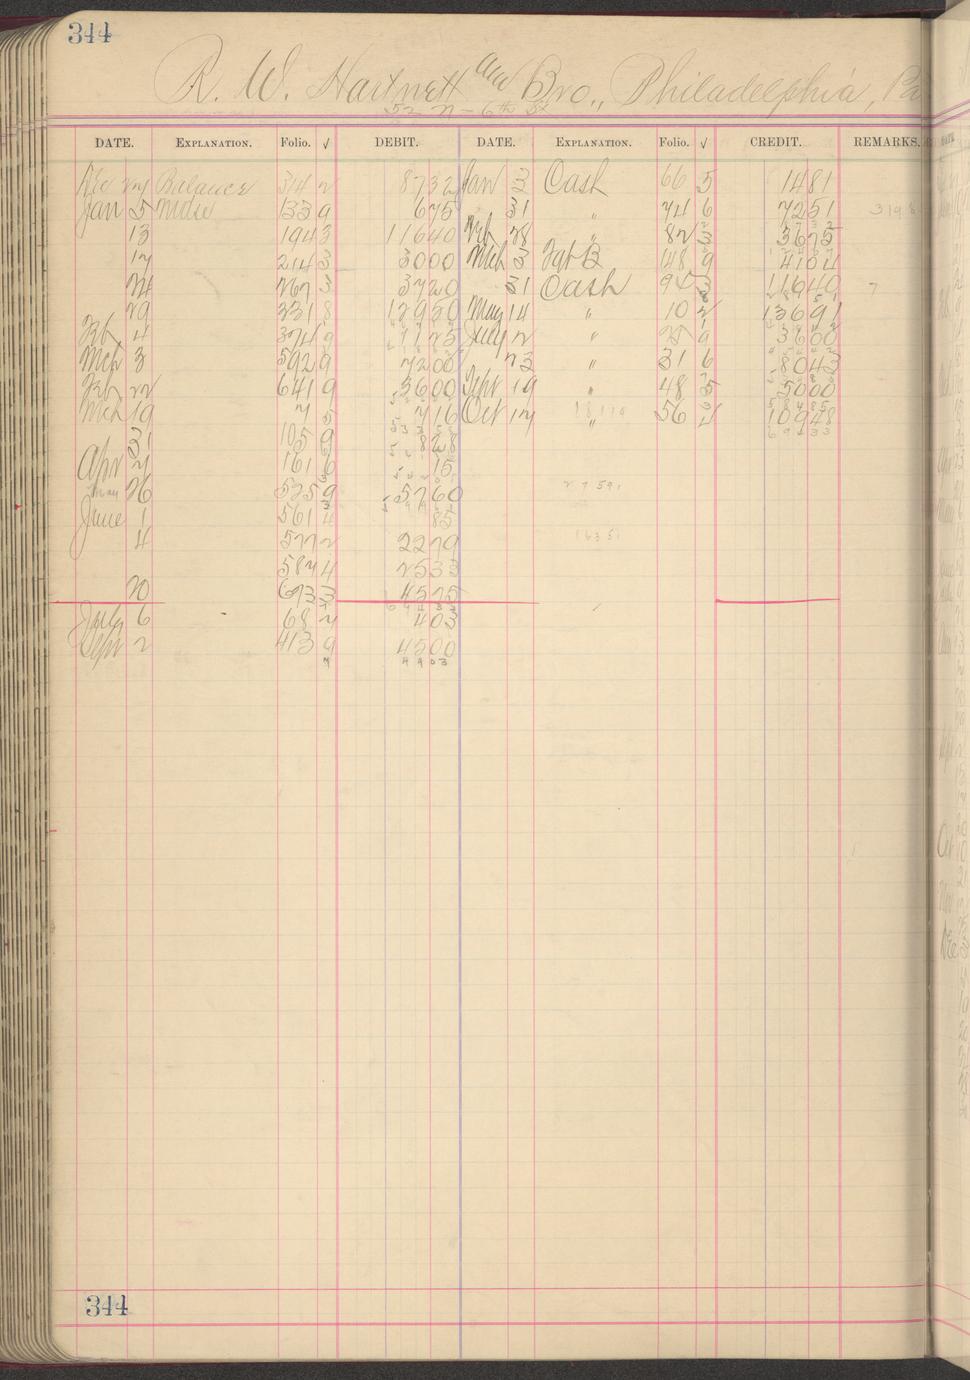 344
R. W. Hartnett and Bro., Philadelphia, Pa
52 N - 6th St
DATE. EXPLANATION. Folio. √ DEBIT. DATE. EXPLANATION. Folio. √ CREDIT. REMARKS.
Dec 27 Balance 314 2 87 32 Jan 3 Cash 66 5 14 81
Jan 5 Mdse 133 9 6 75 31 " 74 6 72 51
13 194 3 116 40 Feb 28 " 82 3 36 75
17 214 3 30 00 Mch 3 48 9 41 04
24 267 3 37 20 31 Cash 95 3 116 40
29 331 8 129 50 May 14 " 10 2 136 91
Feb 4 374 9 11 25 July 2 " 9 36 00
Mch 3 592 9 72 00 23 " 31 6 80 43
Feb 22 641 9 36 00 Sept 19 " 48 5 50 00
Mch 19 7 5 7 16 Oct 17 " 56 4 109 48
31 105 9 8 28
Apr 7 161 6 15
May 26 525 9 57 60
June 1 561 4 85
4 577 2 22 79
587 4 25 33
20 673 3 45 75
July 6 68 2 4 03
Sept 2 413 9 45 00
49 03
344